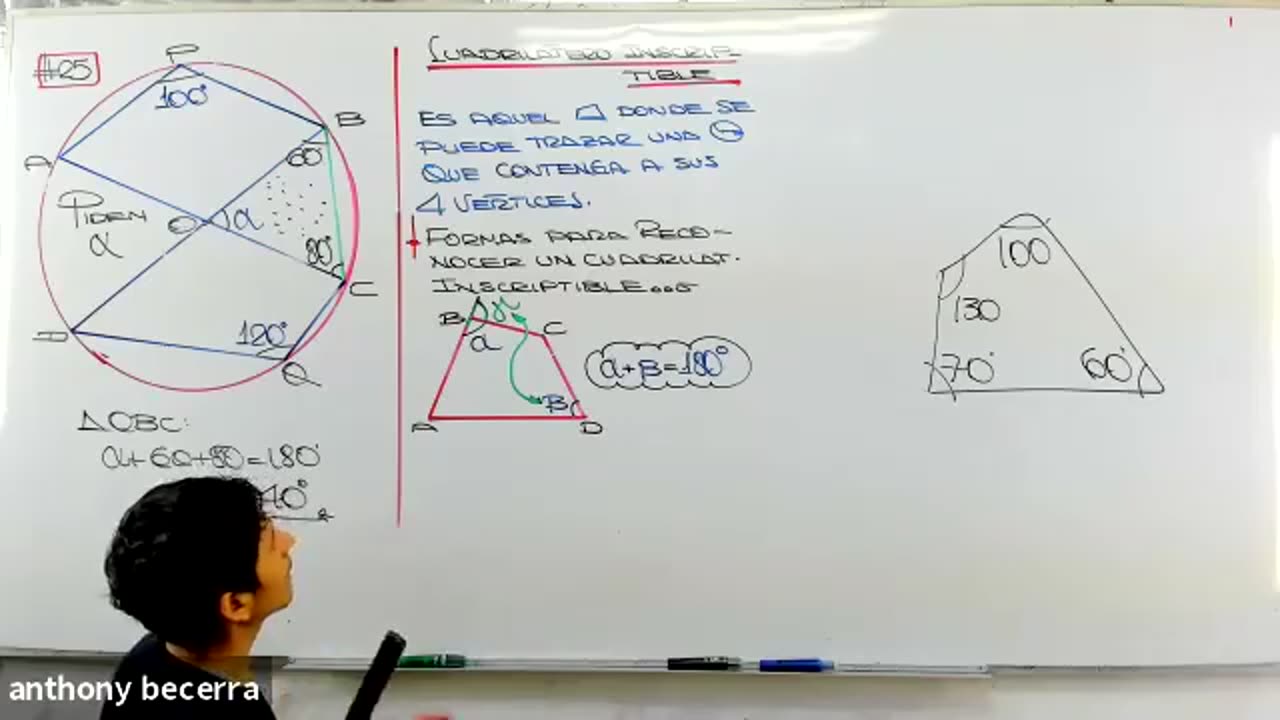 #25
P
100°
B
A
60°
PIDEN
α
O
α
80°
C
D
120°
Q
△OBC:
α+60+80=180°
40°
CUADRILATERO INSCRIP-
TIBLE
ES AQUEL DONDE SE
PUEDE TRAZAR UNA
QUE CONTENGA A SUS
4 VERTICES.
FORMAS PARA RECO-
NOCER UN CUADRILAT.
INSCRIPTIBLE...
B
γ
C
α
β
A
D
α+β=180°
100
130
70°
60°
anthony becerra